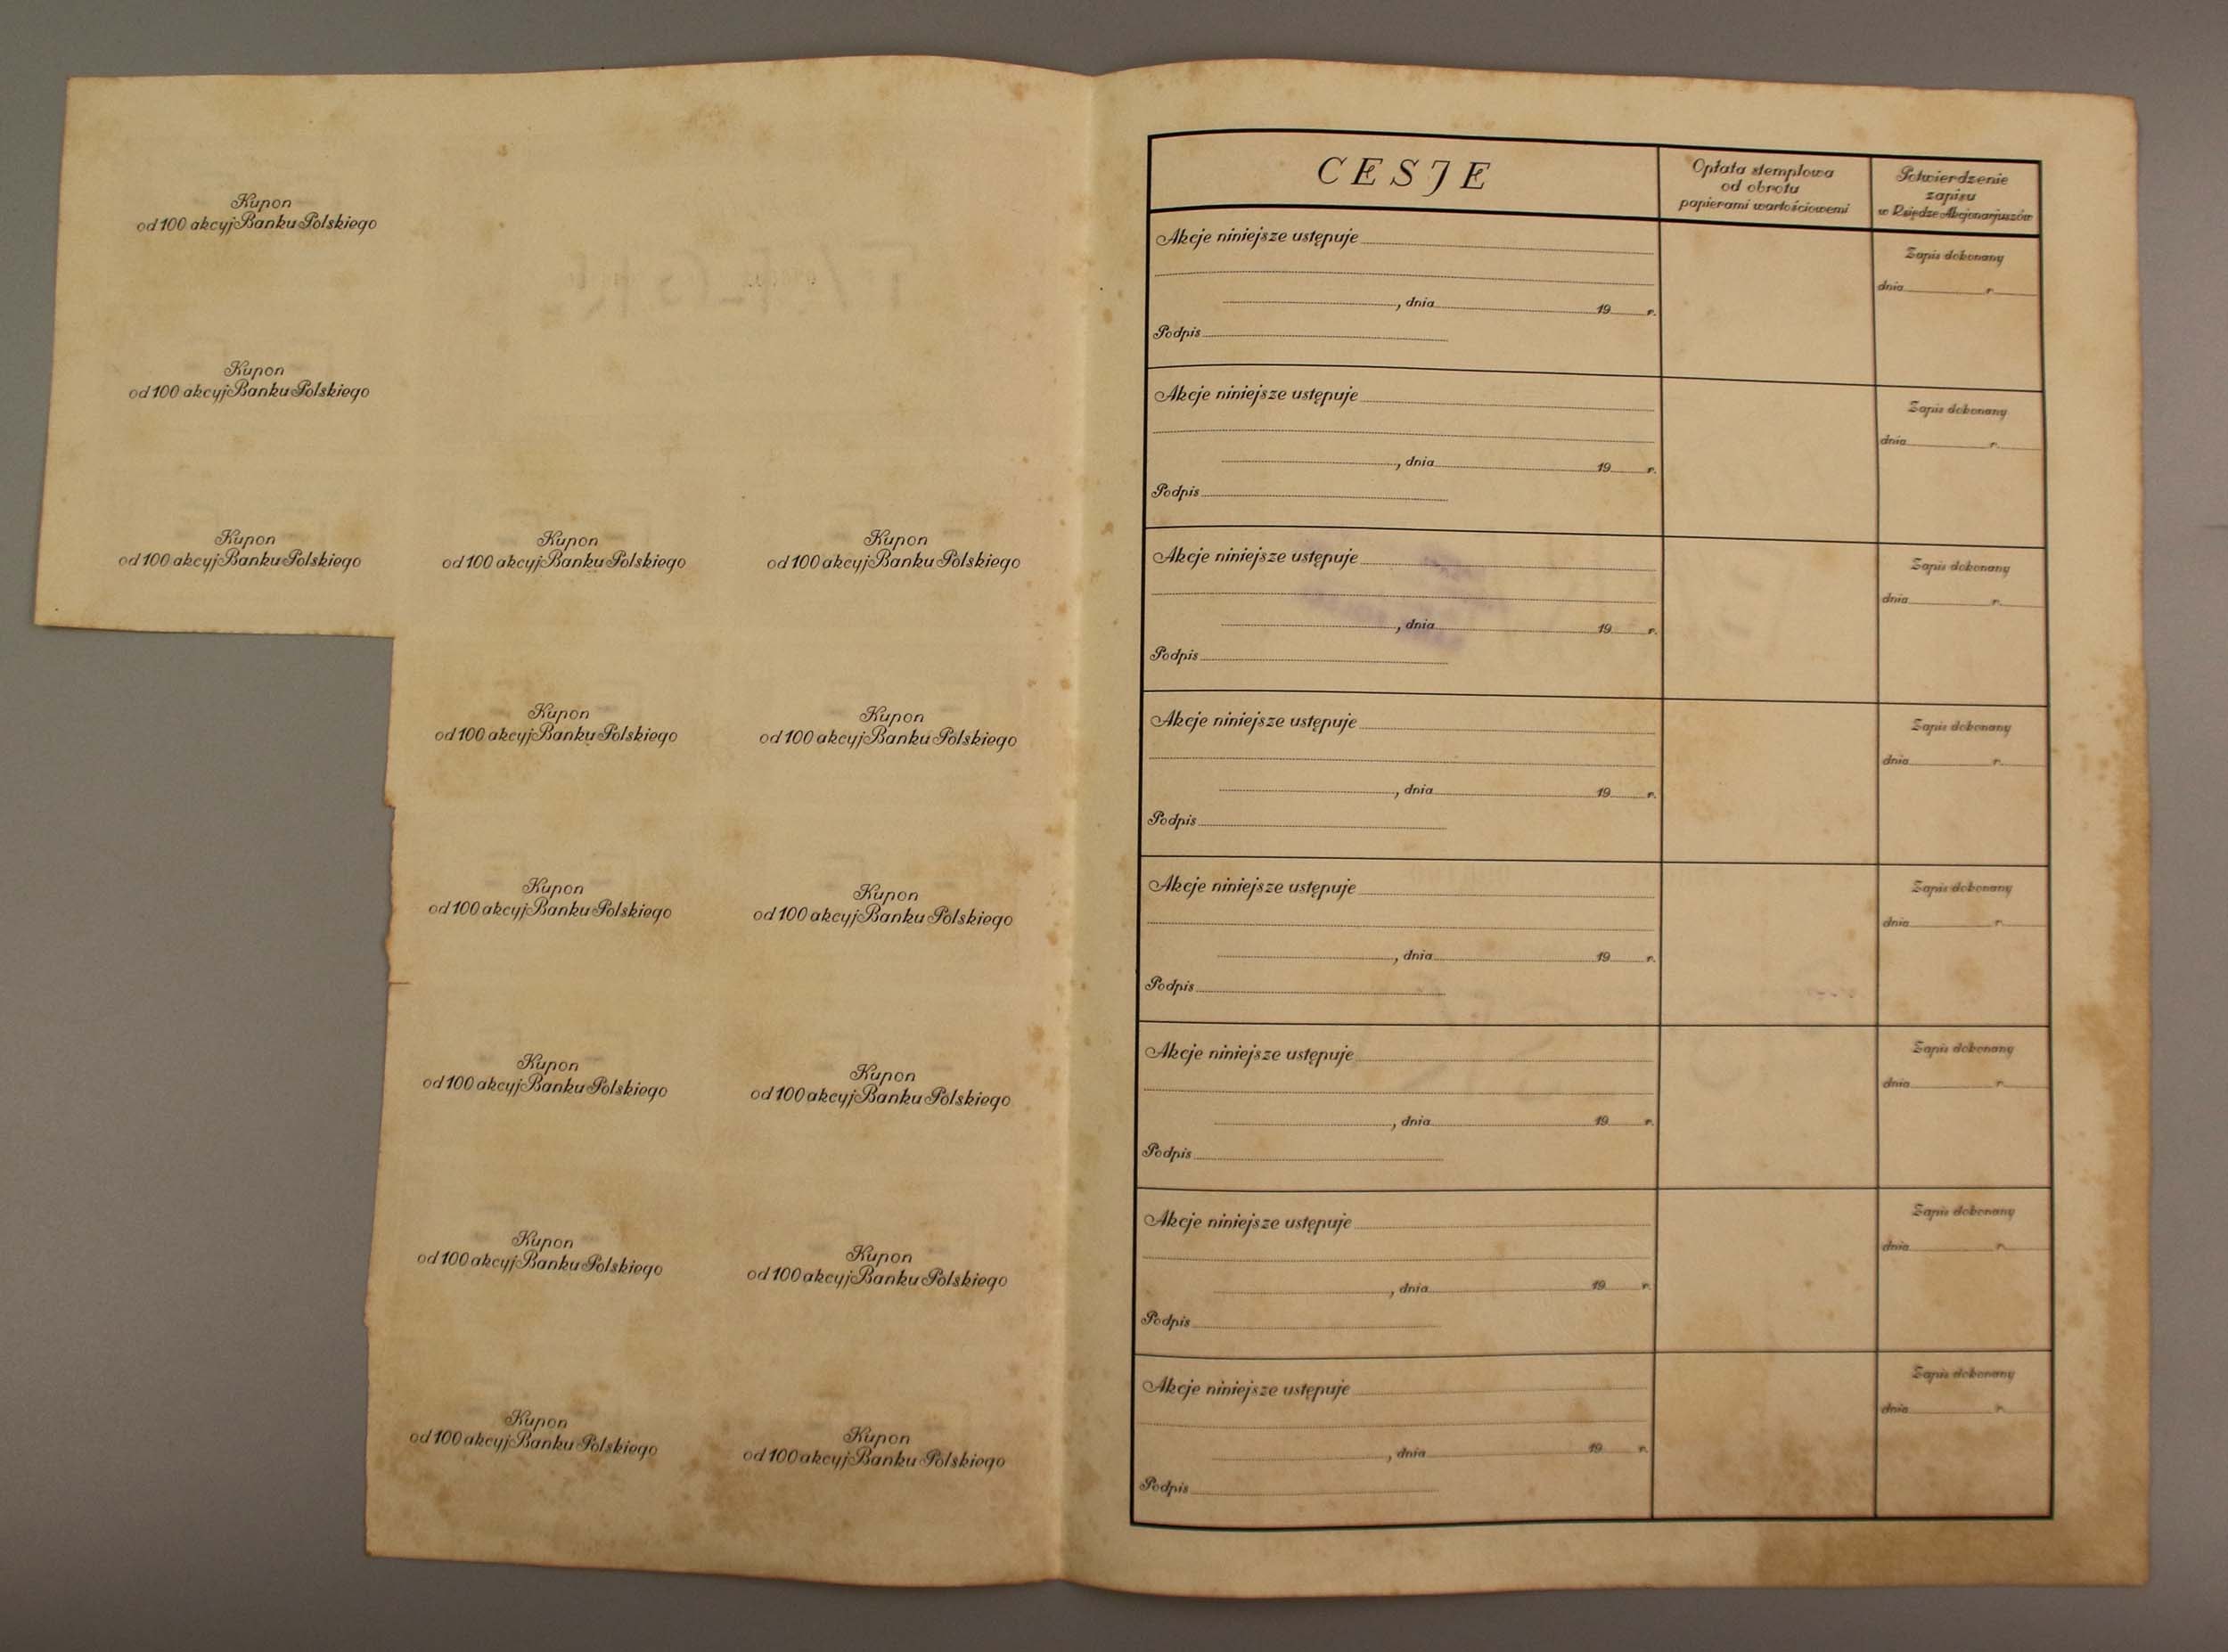 Kupon
od 100 akcyj Banku Polskiego
Kupon
od 100 akcyj Banku Polskiego
Kupon
od 100 akcyj Banku Polskiego
Kupon
od 100 akcyj Banku Polskiego
Kupon
od 100 akcyj Banku Polskiego
Kupon
od 100 akcyj Banku Polskiego
Kupon
od 100 akcyj Banku Polskiego
Kupon
od 100 akcyj Banku Polskiego
Kupon
od 100 akcyj Banku Polskiego
Kupon
od 100 akcyj Banku Polskiego
Kupon
od 100 akcyj Banku Polskiego
Kupon
od 100 akcyj Banku Polskiego
Kupon
od 100 akcyj Banku Polskiego
Kupon
od 100 akcyj Banku Polskiego
Kupon
od 100 akcyj Banku Polskiego
CESJE
Opłata stemplowa
od obrotu
papierami wartościowemi
Potwierdzenie
zapisu
w Księdze Akcjonarjuszów
Akcje niniejsze ustępuje
, dnia 19 r.
Podpis
Zapis dokonany
dnia r.
Akcje niniejsze ustępuje
, dnia 19 r.
Podpis
Zapis dokonany
dnia r.
Akcje niniejsze ustępuje
, dnia 19 r.
Podpis
Zapis dokonany
dnia r.
Akcje niniejsze ustępuje
, dnia 19 r.
Podpis
Zapis dokonany
dnia r.
Akcje niniejsze ustępuje
, dnia 19 r.
Podpis
Zapis dokonany
dnia r.
Akcje niniejsze ustępuje
, dnia 19 r.
Podpis
Zapis dokonany
dnia r.
Akcje niniejsze ustępuje
, dnia 19 r.
Podpis
Zapis dokonany
dnia r.
Akcje niniejsze ustępuje
, dnia 19 r.
Podpis
Zapis dokonany
dnia r.